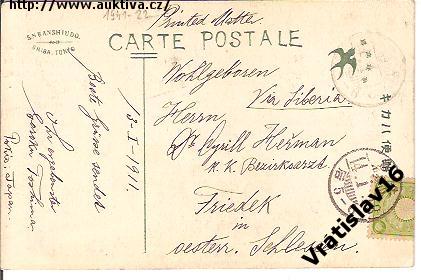 http://www.auktiva.cz/
1941-22
Printed Matter
CARTE POSTALE
S.N.BANSHIUDO.
SHIBA, TOKIO
Wohlgeboren
Via Siberia
Herrn
Dr Cyrill Heřman
K. K. Bezirksarzt
Friedek
in
oesterr. Schlesien
13-I-1911
Beste Grüsse sendet
Ihr ergebenster
Tokio Japan.
キカハ便郵
Vratislav16